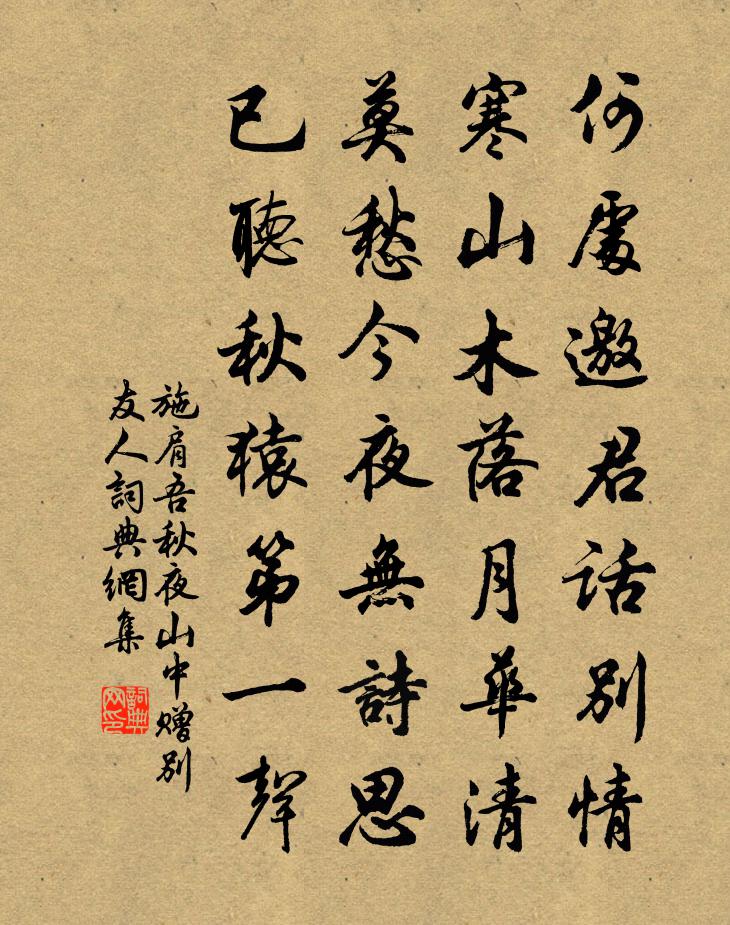 何處邀君話別情
寒山木落月華清
莫愁今夜無詩思
已聽秋猿第一聲
施肩吾秋夜山中赠別
友人詞典網集
詞典
网印